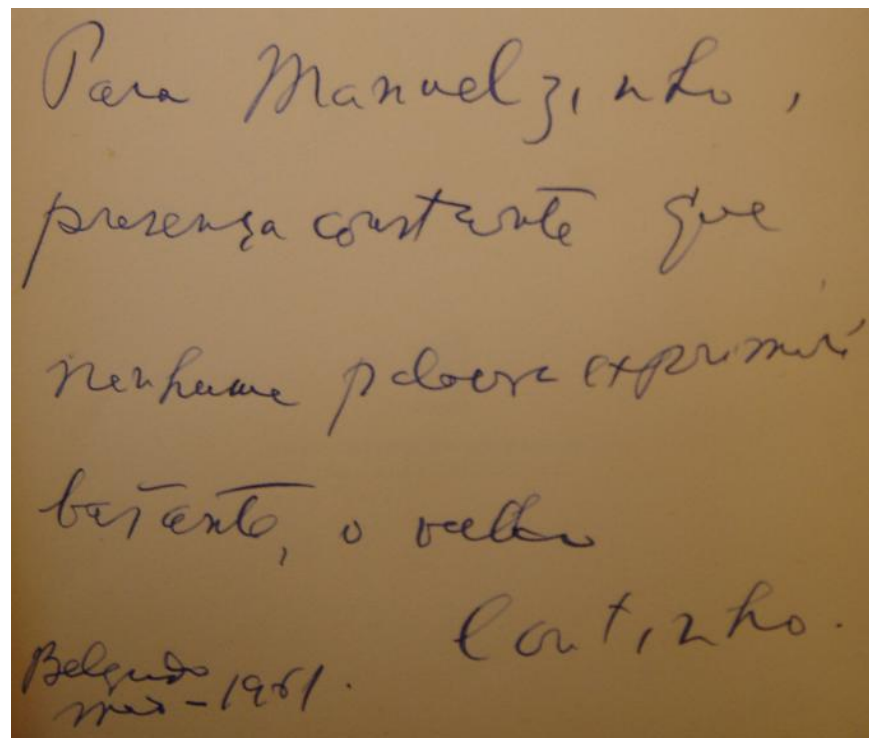 Para Manuelzinho,
presença constante que
nenhuma palavra exprimirá
bastante, o velho
Coutinho.
Belgrado
- 1961.